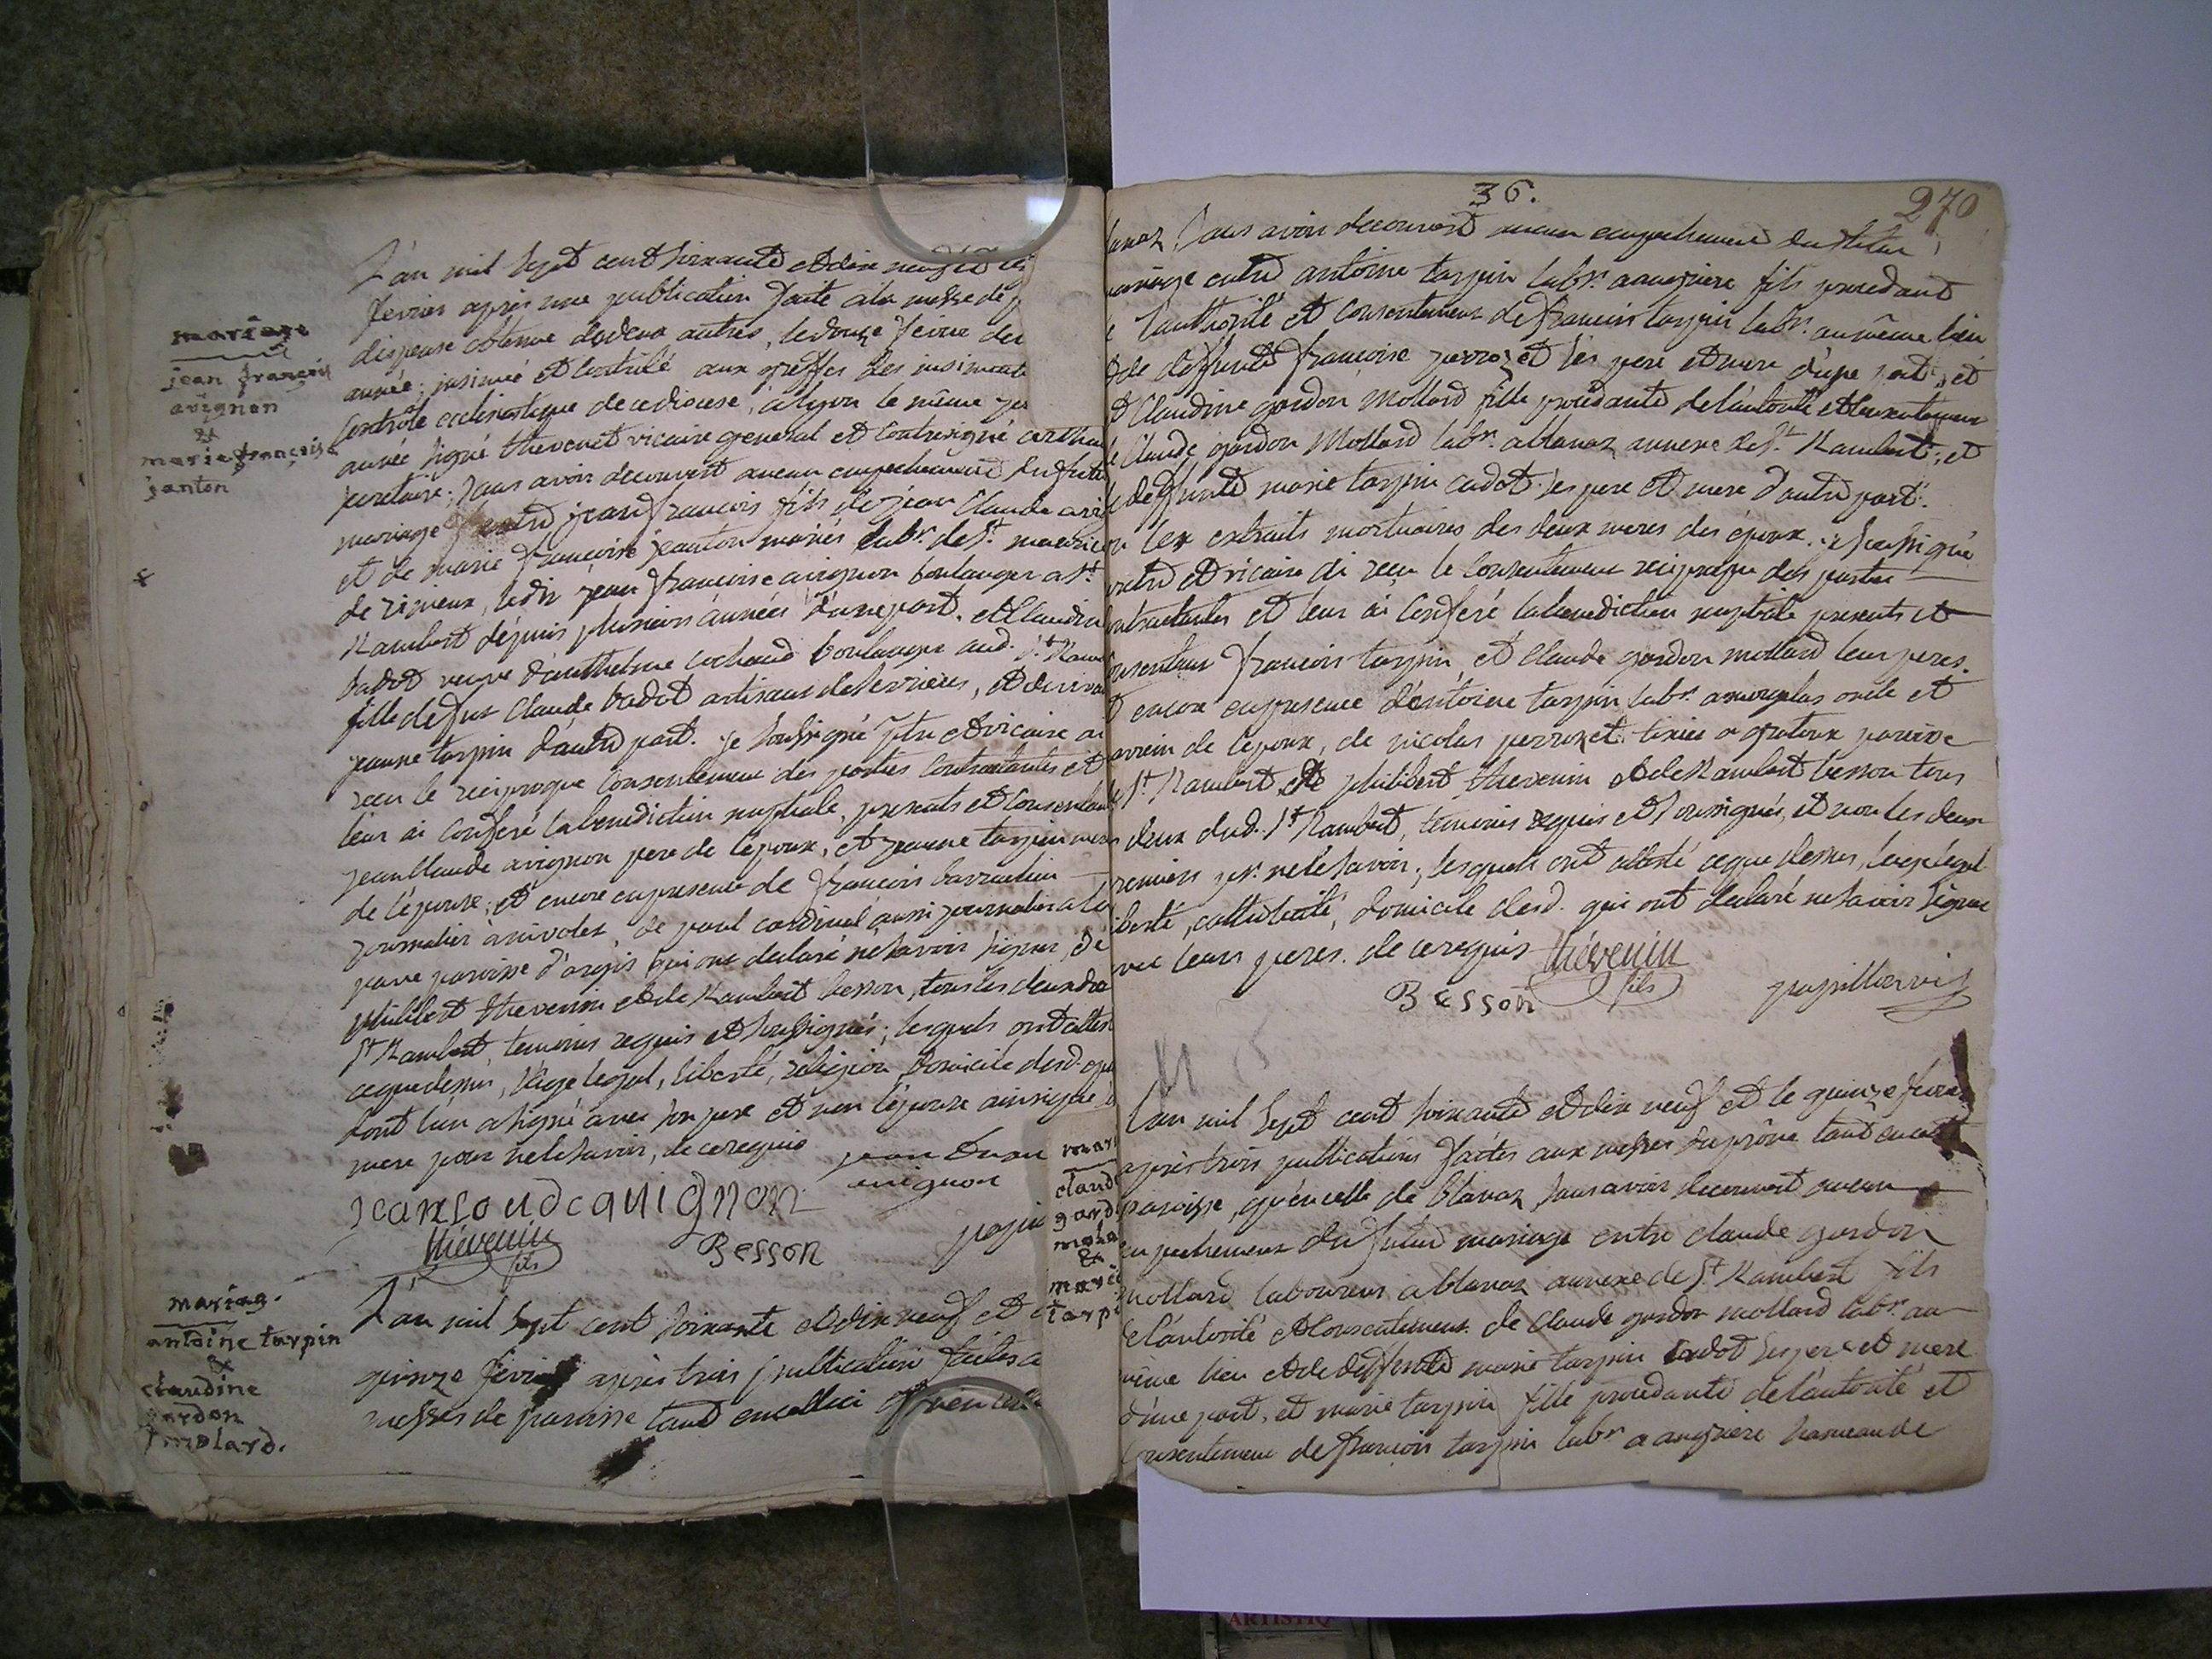 mariage
jean françois
avignon
&
marie françoise
janton
L'an mil sept cent soixante et dix neuf et le
fevrier après une publication faite a la messe de p
dispense obtenue de deux autres, le douze fevrier de
année; insinué et controlé aux greffes des insinuat
controle eclesiastique de ce diocese, a lyon le même jo
année signé thevenet vicaire general et contresigné
secretaire; sans avoir decouvert aucun empechement du futur
mariage entre jean françois fils de jean Claude avi
et de marie françoise jeanton mariés lab.r de S.t maurice
de rimeux, ledit jean françois avignon boulanger a S.t
Rambert depuis plusieurs années d'une part, et Claudin
badot veuve d'anthelme cochaud boulanger aud. S.t Ram
fille de feu Claude badot artisan de serrieres, et de viva
jeanne tarpin d'autre part. je soussigné ptre et vicaire ai
recu le reciproque consentement des parties contractantes et
leur ai conferé la benediction nuptiale, presents et consentans
jean Claude avignon pere de l'epoux, et jeanne tarpin mere
de l'epouse; et encore en presence de françois barraudin
journalier a nivolet de paul cardinal aussi journalier a la
parve paroisse d'argis, qui ont declaré ne savoir signer, de
philibert thevenin et de Rambert besson, tous les deux du
S.t Rambert, temoins requis et soussignés; lesquels ont attest
ce que dessus, l'age legal, liberté, religion, domicile desd. epo
dont l'un a signé avec son pere et non l'epouse ainsi que s
mere pour ne le savoir, de ce requis
jean Claude avignon
thévenin
fils
Besson
mariag.
antoine tarpin
&
claudine
gardon
molard.
L'an mil sept cent soixante et dix neuf et
quinze fevrier après trois publications faites a
messes de paroisse tant en celle ci qu'en celle
mar
claud
gard
mola
&
marie
tarpi
36.
270
lanaz, sans avoir decouvert aucun empechement du futur
mariage entre antoine tarpin lab.r a angriere fils procedant
l'authorité et consentement de françois tarpin lab.r au même lieu
et de deffunte françoise perrozet ses pere et mere d'une part; et
et Claudine gordon mollard fille procedante de l'autorité et consentement
de Claude gordon Mollard lab.r a blanaz annexe de S.t Rambert; et
de deffunte marie tarpin cadot ses pere et mere d'autre part.
les extraits mortuaires des deux meres des epoux. je soussigné
ptre et vicaire ai recu le consentement reciproque des parties
contractantes et leur ai conferé la benediction nuptiale presents et
consentans françois tarpin, et Claude gordon mollard leurs peres.
et encore en presence d'antoine tarpin lab.r a oncle et
parrein de l'epoux, de nicolas perrozet tixier a gratoux paroisse
S.t Rambert, de philibert thevenin et de Rambert besson tous
deux dud. S.t Rambert, temoins requis et soussignés, et non les deux
premiers p.r ne le savoir; lesquels ont attesté ce que dessus, l'age legal
liberté, catholicité, domicile desd. qui ont declaré ne savoir signer
avec leurs peres. de ce requis
thévenin
fils
Besson
papillon vic
L'an mil sept cent soixante et dix neuf et le quinze fevrier
après trois publications faites aux messes du prône tant en cette
paroisse, qu'en celle de blanaz, sans avoir decouvert aucun
empechement du futur mariage entre claude gordon
mollard laboureur a blanaz annexe de S.t Rambert fils
de l'autorité et consentement de Claude gordon mollard lab.r au
même lieu et de deffunte marie tarpin cadot ses pere et mere
d'une part, et marie tarpin fille procedante de l'autorité et
consentement de françois tarpin lab.r a angriere hameau de